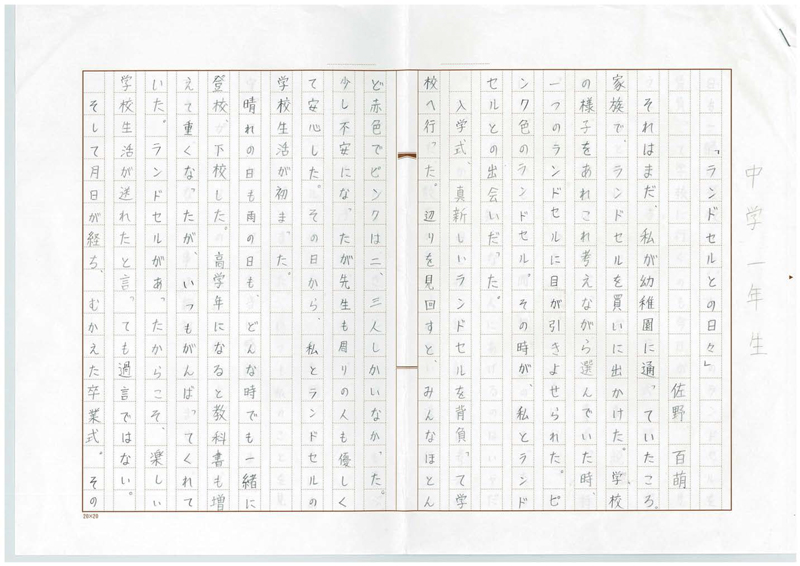 中学一年生
「ランドセルとの日々」
佐野 百萌
それはまだ、私が幼稚園に通っていたころ。
家族で、ランドセルを買いに出かけた。学校
の様子をあれこれ考えながら選んでいた時、
一つのランドセルに目が引きよせられた。ピ
ンク色のランドセル。その時が、私とランド
セルとの出会いだった。
入学式、真新しいランドセルを背負って学
校へ行った。辺りを見回すと、みんなほとん
ど赤色でピンクは二、三人しかいなかった。
少し不安になったが先生も周りの人も優しく
て安心した。その日から、私とランドセルの
学校生活が初まった。
晴れの日も雨の日も、どんな時でも一緒に
登校、下校した。高学年になると教科書も増
えて重くなったが、いつもがんばってくれて
いた。ランドセルがあったからこそ、楽しい
学校生活が送れたと言っても過言ではない。
そして月日が経ち、むかえた卒業式。その
20×20